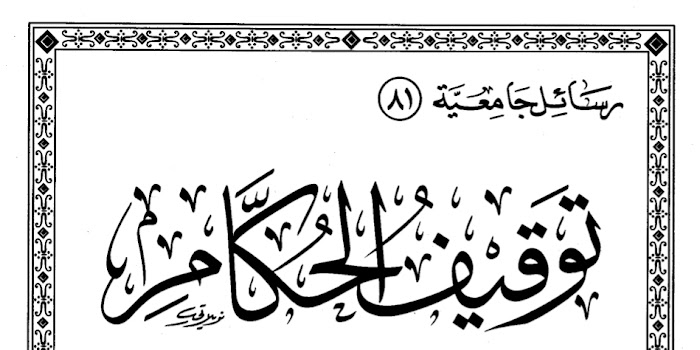 رسائل جامعية (٨١)
توقيف الحكام